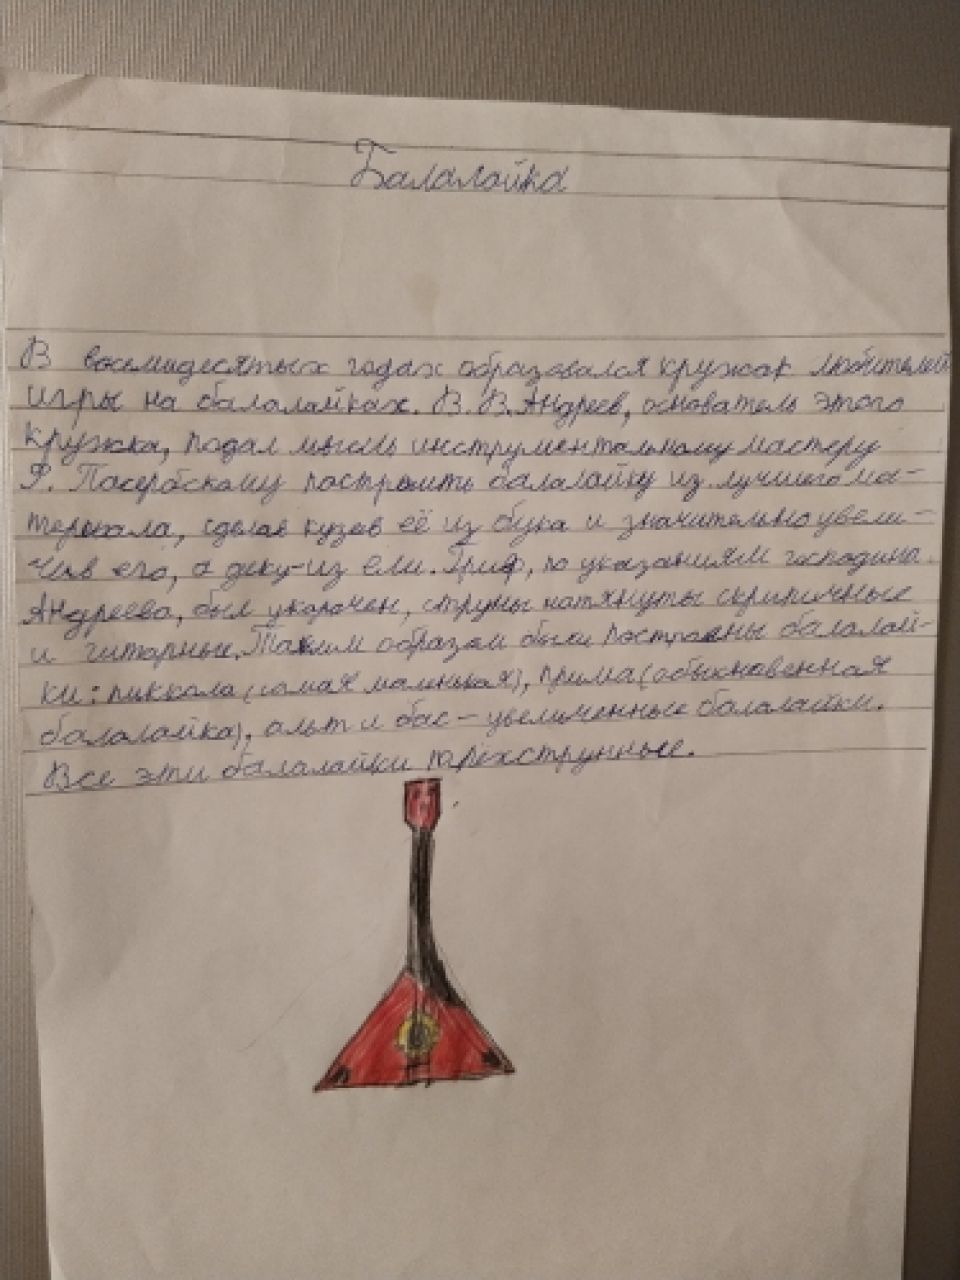 Балалайка
В восмидесятых годах образовался кружок любителей
игры на балалайках. В. В. Андреев, основатель этого
кружка, подал мысль инструментальному мастеру
Ф. Пасербскому построить балалайку из лучшего ма-
териала, сделав кузов её из бука и значительно увели-
чив его, а деку-из ели. Гриф, по указаниям господина
Андреева, был укорочен, струны натянуты скрипичные
и гитарные. Таким образом были построены балалай-
ки: пиккола (самая малинькая), прима (обыкновенная
балалайка), альт и бас – увеличенные балалайки.
Все эти балалайки трёхструнные.